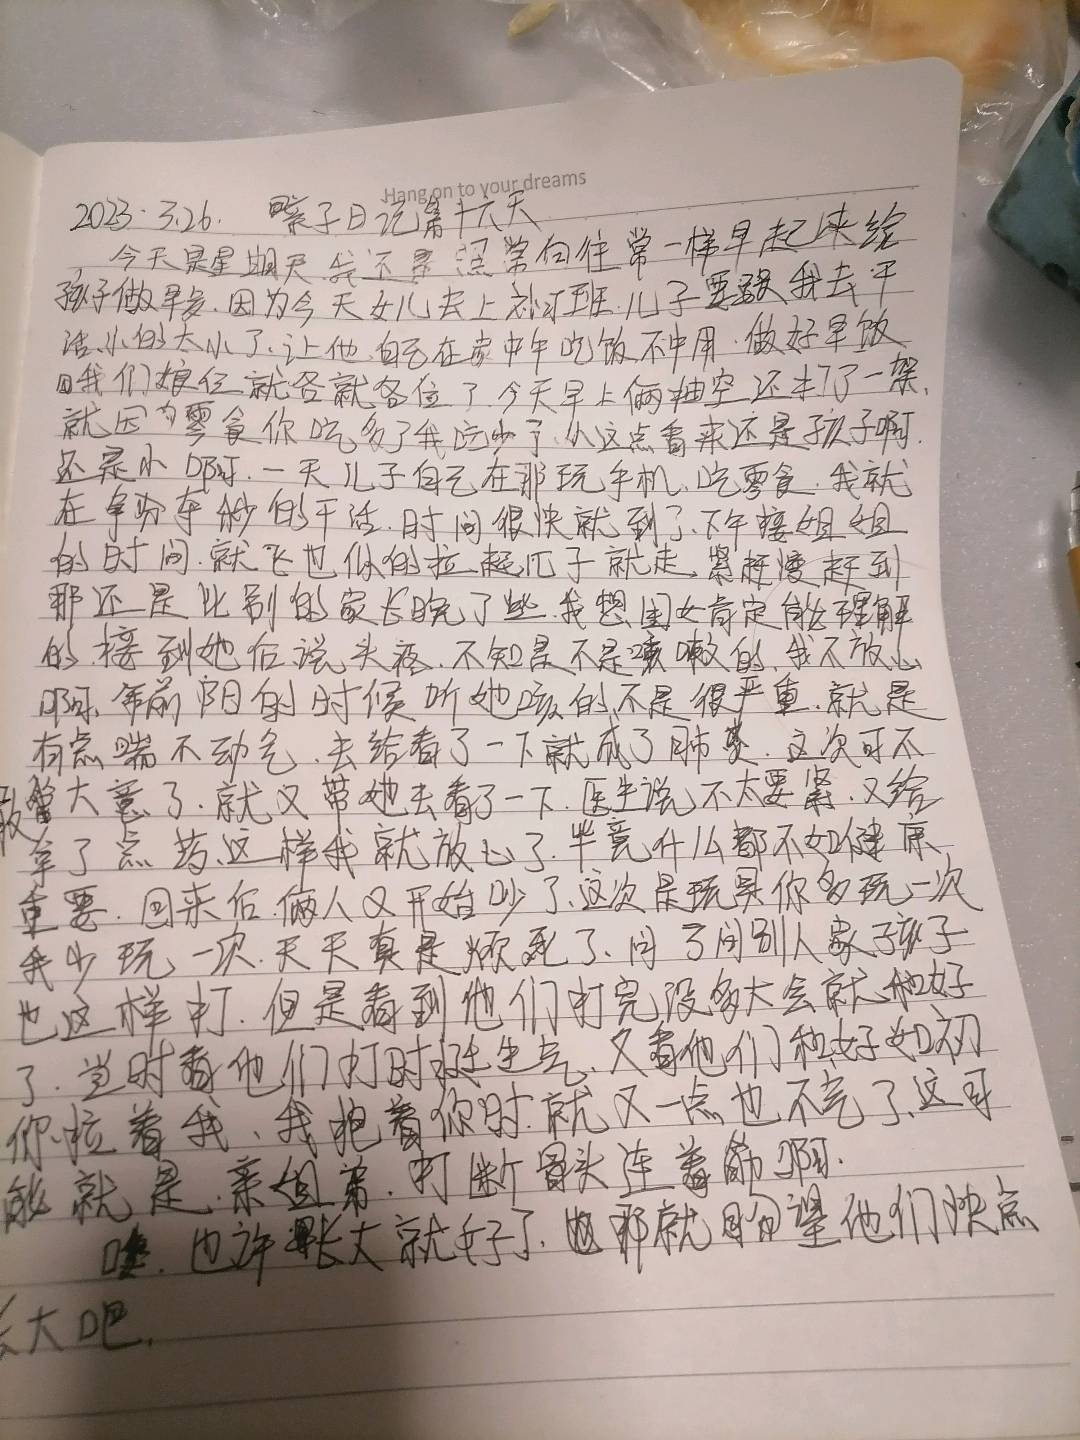 Hang on to your dreams
2023.3.26. 亲子日记第十六天
今天是星期天,我还是照常向往常一样早起床给
孩子做早餐.因为今天女儿去上补习班.儿子要跟我去干
活.小的太小了.让他自己在家中午吃饭不中用.做好早饭
我们娘仨就各就各位了.今天早上俩抽空还打了一架.
就因为零食你吃多了我吃少了.从这点看来还是孩子啊.
还是小啊.一天儿子自己在那玩手机.吃零食.我就
在争分夺秒的干活.时间很快就到了.下午接姐姐
的时间.就飞也似的拉起儿子就走.紧赶慢赶到
那还是比别的家长晚了些.我想闺女肯定能理解
的.接到她后说头疼.不知是不是咳嗽的.我不放心
啊.年前阳的时候听她咳的不是很严重.就是
有点喘不动气.去给看了一下就成了肺炎.这次可不
敢大意了.就又带她去看了一下.医生说不太要紧.又给
拿了点药.这样我就放心了.毕竟什么都不如健康
重要.回来后.俩人又开始吵了.这次是玩具你多玩一次
我少玩一次.天天真是烦死了.问了问别人家孩子
也这样打.但是看到他们打完没多大会就和好
了.当时看他们打时挺生气.又看他们和好如初
你拉着我、我抱着你时.就又一点也不气了.这可
能就是.亲姐弟.打断骨头连着筋啊.
唉.也许长大就好了.那就盼望他们快点
长大吧.